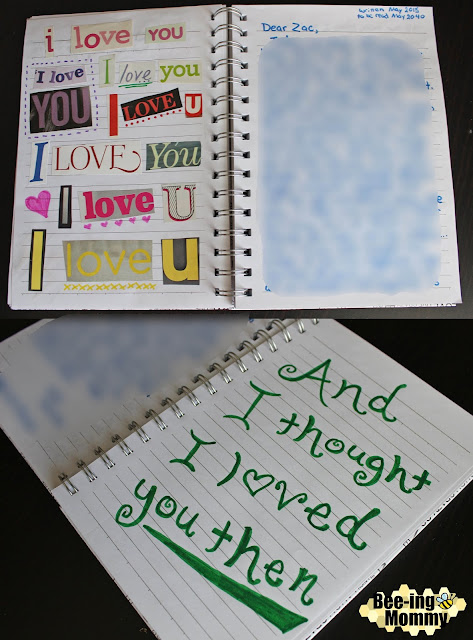 i love YOU
I love
YOU
I love you
I LOVE U
I LOVE You
I love U
I love u
written May 2015
to be read May 2040
Dear Zac,
And
I thought
I loved
you then
Bee-ing
Mommy